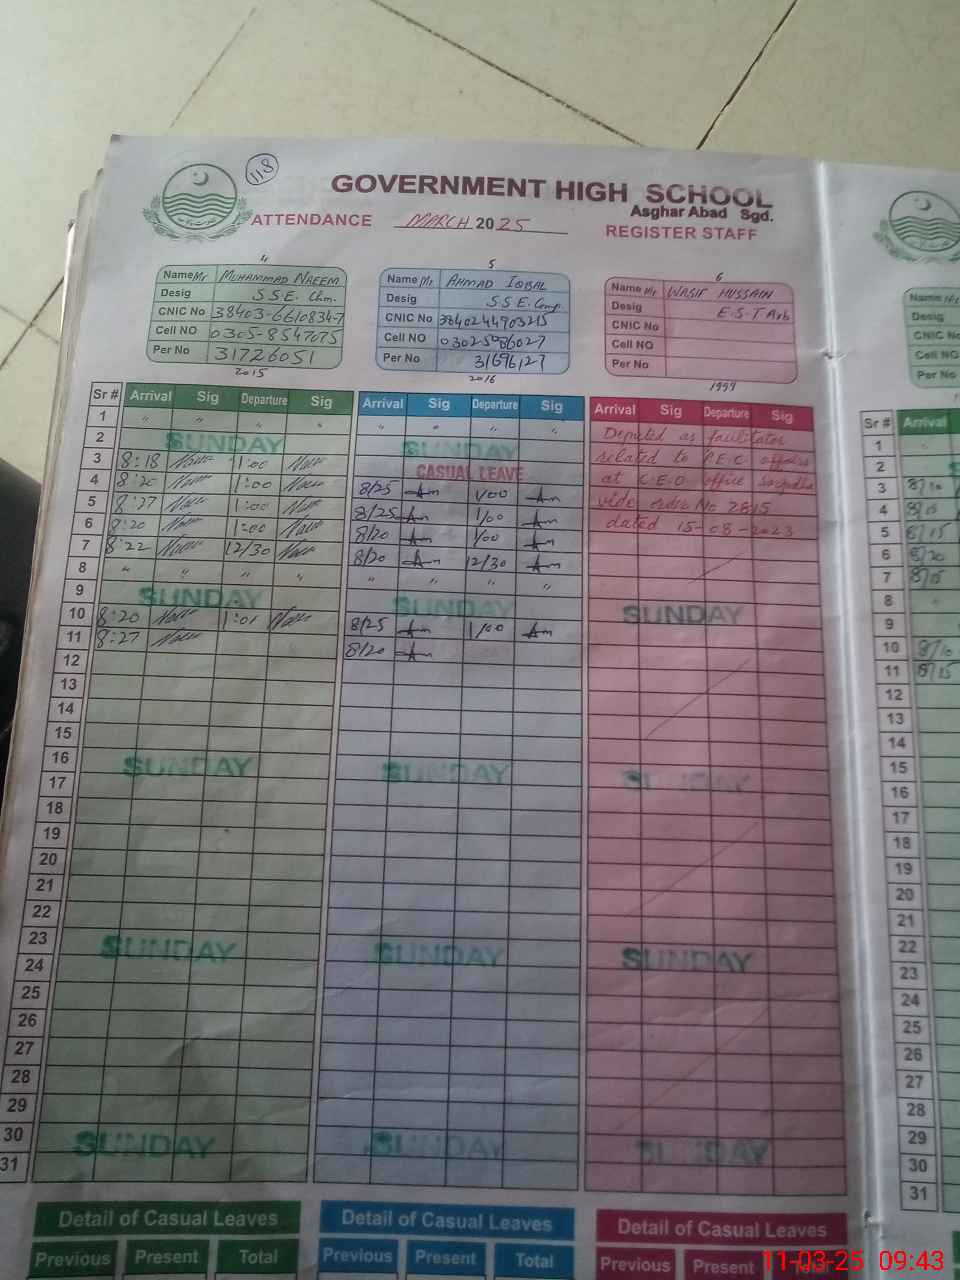 118
GOVERNMENT HIGH SCHOOL
Asghar Abad Sgd.
ATTENDANCE MARCH 2025 REGISTER STAFF
4
Name Mr MUHAMMAD NAEEM
Desig S.S.E. Chm.
CNIC No 38403-6610834-7
Cell NO 0305-8547075
Per No 31726051
2015
5
Name Mr AHMAD IQBAL
Desig S.S.E. Comp.
CNIC No 3840244903215
Cell NO 03025086027
Per No 31696127
2016
6
Name Mr WASIF HUSSAIN
Desig E.S.T Arb
CNIC No
Cell NO
Per No
1997
Sr # Arrival Sig Departure Sig Arrival Sig Departure Sig Arrival Sig Departure Sig
1 " " " " " " " "
2 SUNDAY SUNDAY
3 8:18 1:00 CASUAL LEAVE
4 8:20 1:00 8/25 1/00
5 8:27 1:00 8/25 1/00
6 8:20 1:00 8/20 1/00
7 8:22 12/30 8/20 12/30
8 " " " " " " " "
9 SUNDAY SUNDAY SUNDAY
10 8:20 1:01 8/25 1/00
11 8:27 8/20
12
13
14
15
16 SUNDAY SUNDAY SUNDAY
17
18
19
20
21
22
23 SUNDAY SUNDAY SUNDAY
24
25
26
27
28
29
30 SUNDAY SUNDAY SUNDAY
31
Deputed as facilitator
related to P.E.C. affairs
at C.E.O office Sargodha
vide order No 2815
dated 15-08-2023
Detail of Casual Leaves Detail of Casual Leaves Detail of Casual Leaves
Previous Present Total Previous Present Total Previous Present
Name Mr
Desig
CNIC No
Cell NO
Per No
Sr # Arrival
1
2
3 8/10
4 8/15
5 8/15
6 8/20
7 8/15
8
9
10 8/10
11 8/15
12
13
14
15
16
17
18
19
20
21
22
23
24
25
26
27
28
29
30
31
11-03-25 09:43